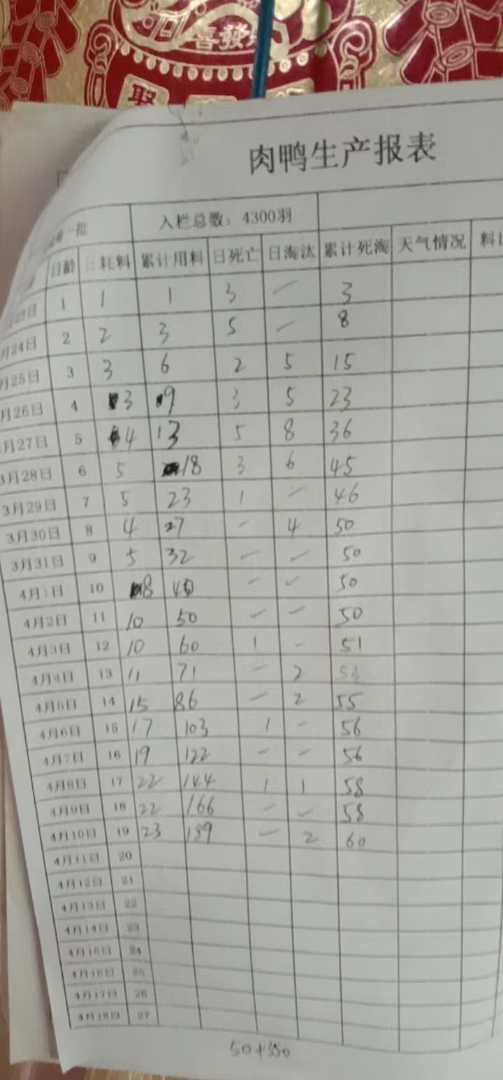 喜發
聚
肉鸭生产报表
批 入栏总数：4300羽
日龄 日耗料 累计用料 日死亡 日淘汰 累计死淘 天气情况 料
23日 1 1 1 3 — 3
月24日 2 2 3 5 — 8
月25日 3 3 6 2 5 15
月26日 4 3 9 3 5 23
月27日 5 4 13 5 8 36
3月28日 6 5 18 3 6 45
3月29日 7 5 23 1 — 46
3月30日 8 4 27 — 4 50
3月31日 9 5 32 — — 50
4月1日 10 8 40 — — 50
4月2日 11 10 50 — — 50
4月3日 12 10 60 1 — 51
4月4日 13 11 71 — 2 53
4月5日 14 15 86 — 2 55
4月6日 15 17 103 1 — 56
4月7日 16 19 122 — — 56
4月8日 17 22 144 1 1 58
4月9日 18 22 166 — — 58
4月10日 19 23 189 — 2 60
4月11日 20
4月12日 21
4月13日 22
4月14日 23
4月15日 24
4月16日 25
4月17日 26
4月18日 27
50+350